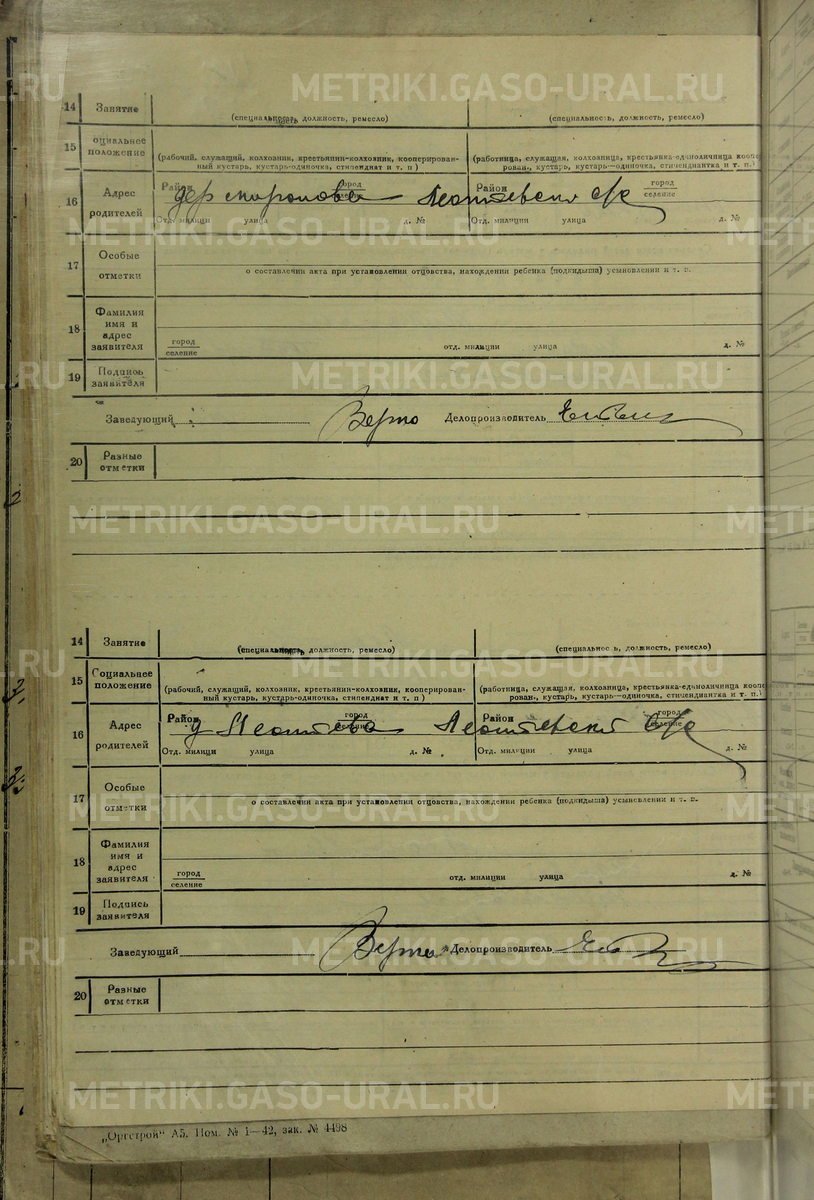 METRIKI.GASO-URAL.RU
14 Занятие
(специальность, должность, ремесло) (специальность, должность, ремесло)
15 оциальнее положение
(рабочий, служащий, колхозник, крестьянин-колхозник, кооперирован-
ный кустарь, кустарь-одиночка, стипендиат и т. п )
(работница, служащая, колхозница, крестьянка-единоличница коопе
рован., кустарь, кустарь—одиночка, стипендиантка и т. п.)
16 Адрес родителей
Район город селение Район город селение
дер
Отд. милиции улица д. № Отд. милиции улица д. №
METRIKI.GASO-URAL.RU
17 Особые отметки
о составлении акта при установлении отцовства, нахождении ребенка (подкидыша) усыновлении и т. п.
18 Фамилия имя и адрес заявителя
город селение отд. милиции улица д. №
19 Подпись заявителя
METRIKI.GASO-URAL.RU
Заведующий Делопроизводитель
20 Разные отметки
METRIKI.GASO-URAL.RU
14 Занятие
(специальность, должность, ремесло) (специальнос ь, должность, ремесло)
METRIKI.GASO-URAL.RU
15 Социальнее положение
(рабочий, служащий, колхозник, крестьянин-колхозник, кооперирован-
ный кустарь, кустарь-одиночка, стипендиат и т. п )
(работница, служащая, колхозница, крестьянка-единоличница коопе
рован., кустарь, кустарь—одиночка, стипендиантка и т. п.)
16 Адрес родителей
Район город селение Район город селение
Отд. милици улица д. № Отд. милиции улица д. №
17 Особые отметки
о составлении акта при установлении отцовства, нахождении ребенка (подкидыша) усыновлении и т. п.
METRIKI.GASO-URAL.RU
18 Фамилия имя и адрес заявителя
город селение отд. милиции улица д. №
19 Подпись заявителя
METRIKI.GASO-URAL.RU
Заведующий Делопроизводитель
20 Разные отметки
METRIKI.GASO-URAL.RU
„Оргстрой“ А5. Пом. № 1—42, зак. № 4498